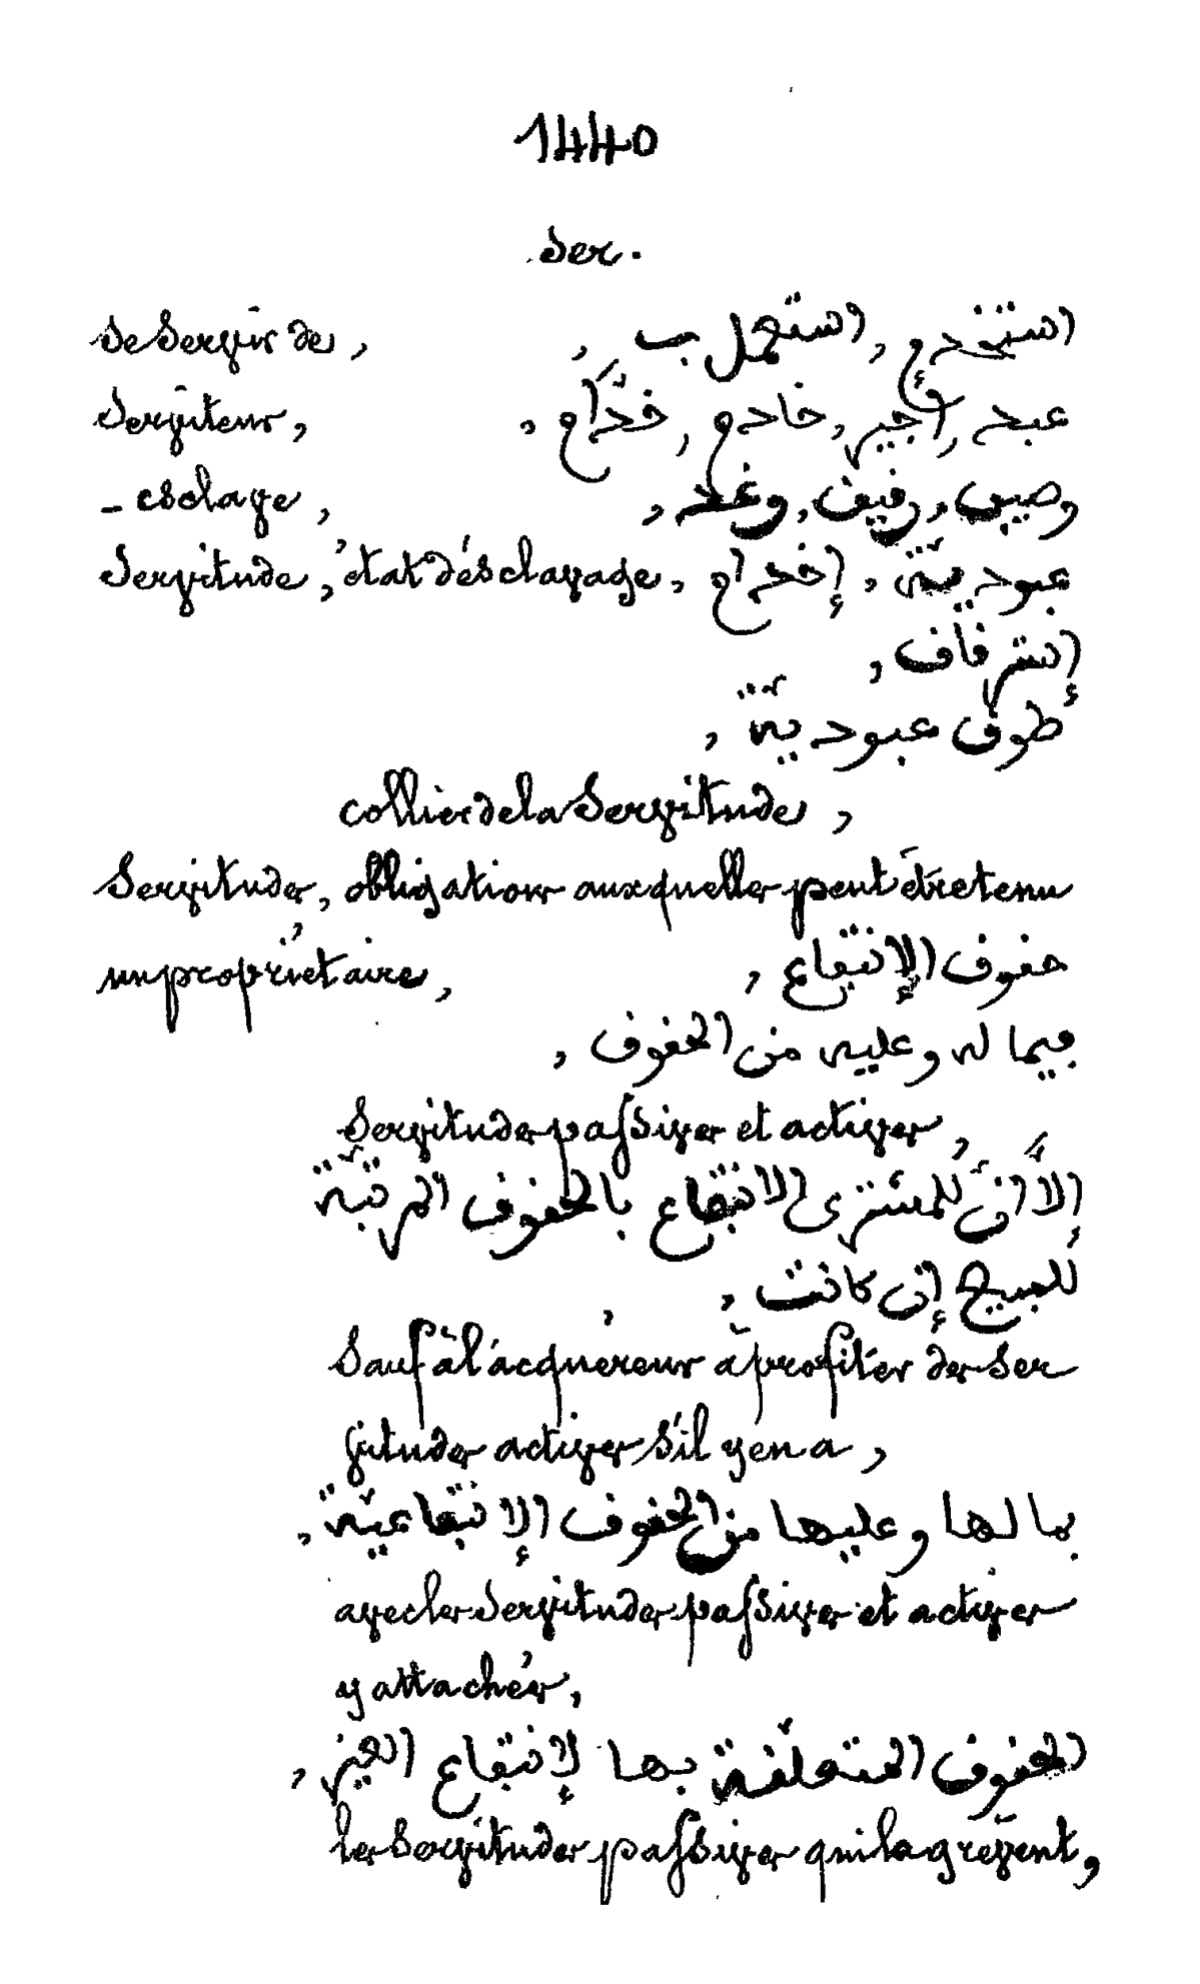 1440
Ser.
Se Servir de, استخدم, استعمل ب,
Serviteur, عبد, اجير, خادم, خدّام,
- esclave, وصيف, رقيق, وغد,
Servitude, état d'ésclavage, عبوديّة, إخدام,
إسترقاق,
طوق عبوديّة,
collier de la Servitude,
Servitudes, obligations auxquelles peut être tenu
un propriétaire, حقوق الإنتفاع,
فيما له وعليه من الحقوق,
Servitudes passives et actives,
إلاّ انّ للمشترى الانتفاع بالحقوق المرتبّة
للمبيع إن كانت,
Sauf à l'acquéreur à profiter des Ser
vitudes actives S'il y en a,
بما لها وعليها من الحقوق الإنتفاعيّة,
avec les Servitudes passives et actives
y attachés,
الحقوق المتعلّقة بها لإنتفاع الغير,
les Servitudes passives qui la grèvent,